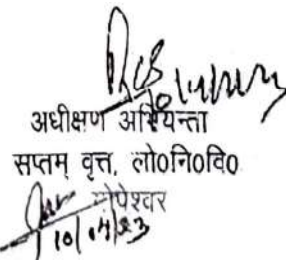 अधीक्षण अभियन्ता
सप्तम् वृत्त, लो०नि०वि०
गोपेश्वर